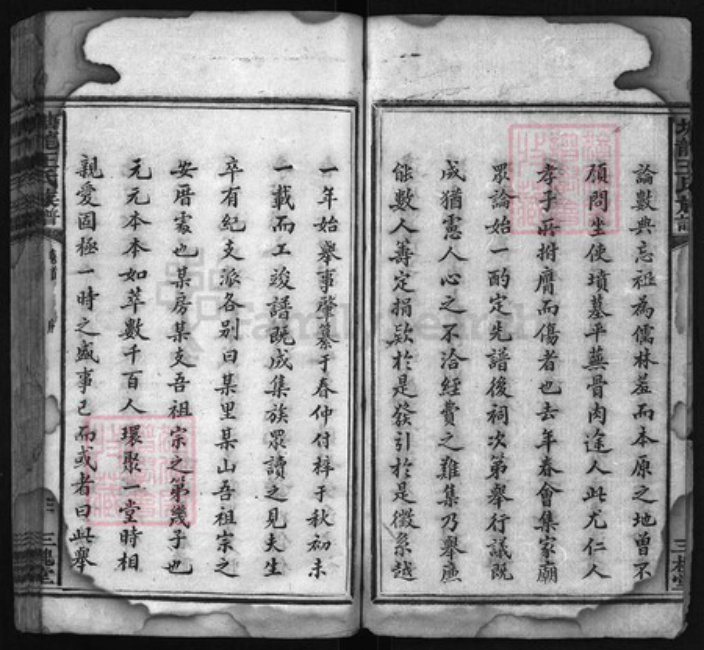 論數典忘祖為儒林羞而本原之地曾不
顧問坐使墳墓平蕪骨肉途人此尤仁人
孝子所拊膺而傷者也去年春會集家廟
眾論始一酌定先譜後祠次第舉行議既
成猶憲人心之不洽經費之難集乃舉廉
能數人籌定捐款於是發引於是徵系越
一年始舉事肇纂于春仲付梓于秋初未
一載而工竣譜既成集族眾讀之見夫生
卒有紀支派各別曰某里某山吾祖宗之
安厝處也某房某支吾祖宗之第幾子也
元元本本如萃數千百人環聚一堂時相
親愛固極一時之盛事已而或者曰此舉
王氏族譜
三槐堂
FamilySearch